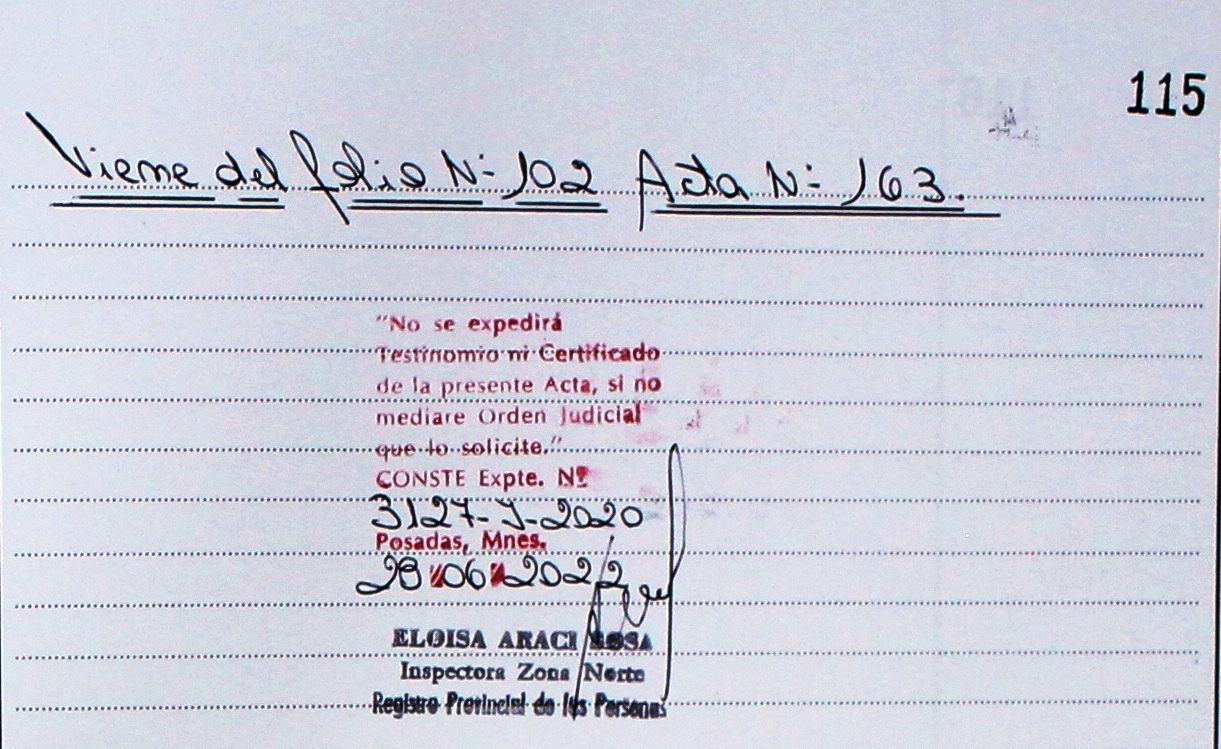 115
Viene del folio N- 102 Acta N- 163.
"No se expedirá
Testinomio ni Certificado
de la presente Acta, si no
mediare Orden Judicial
que lo solicite."
CONSTE Expte. Nº
3127-J-2020
Posadas, Mnes.
28 06 2022
ELOISA ARACI ROSA
Inspectora Zona Norte
Registro Provincial de las Personas